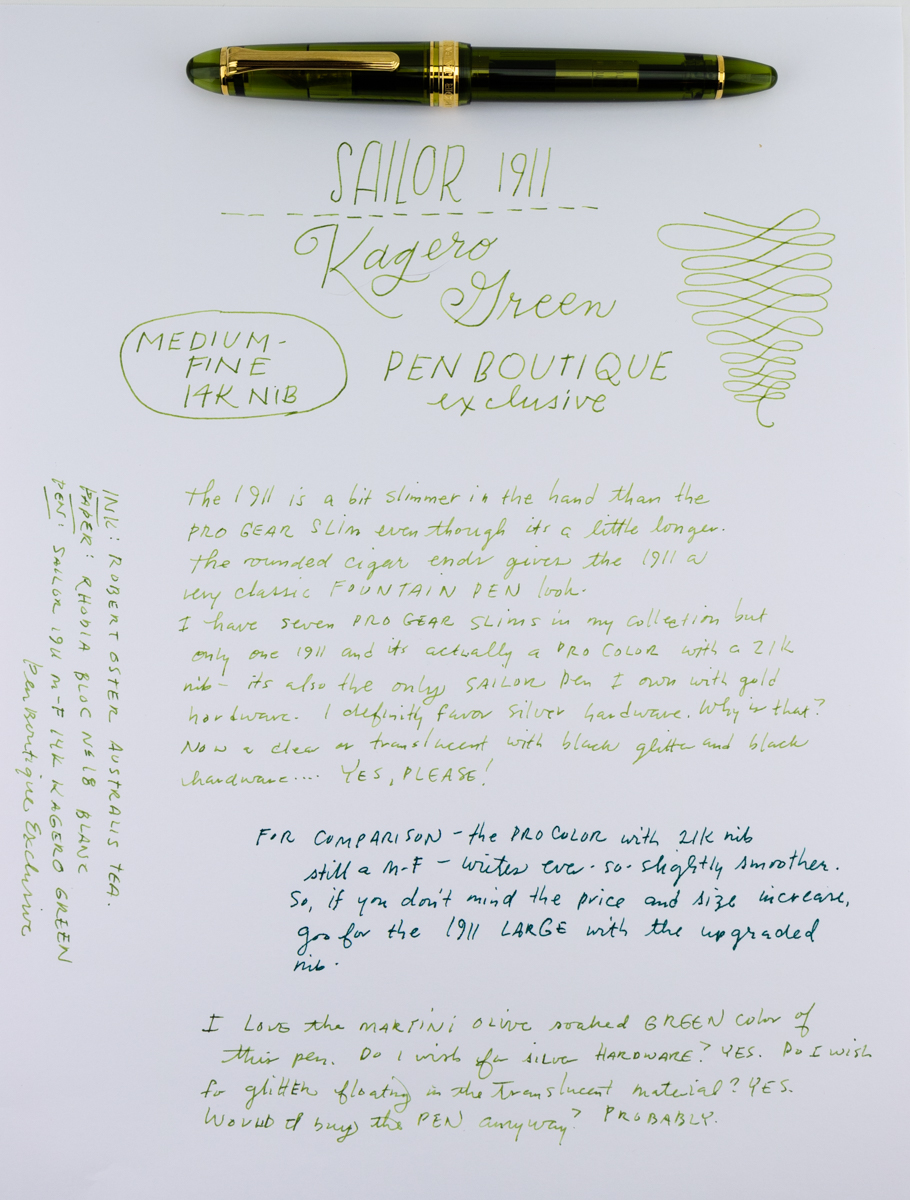 SAILOR 1911
Kagero
Green
MEDIUM-
FINE
14K NIB
PEN BOUTIQUE
exclusive
the 1911 is a bit slimmer in the hand than the
PRO GEAR SLIM even though its a little longer.
the rounded cigar ends gives the 1911 a
very classic FOUNTAIN PEN look.
I have seven PRO GEAR SLIMS in my collection but
only one 1911 and its actually a PRO COLOR with a 21k
nib - its also the only SAILOR pen I own with gold
hardware. I definitly favor silver hardware. Why is that?
Now a clear or translucent with black glitter and black
hardware.... YES, PLEASE!
FOR COMPARISON - the PRO COLOR with 21K nib
still a M-F - writes ever-so-slightly smoother.
So, if you don't mind the price and size increase,
goo for the 1911 LARGE with the upgraded
nib.
I LOVE the MARTINI OLIVE soaked GREEN color of
this pen. Do I wish for silver HARDWARE? YES. Do I wish
for glitter floating in the translucent material? YES.
Would I buy the PEN anyway? PROBABLY.
INK: ROBERT OSTER AUSTRALIS TEA.
PAPER: RHODIA BLOC Nº18 BLANC
PEN: SAILOR 1911 M-F 14K KAGERO GREEN
Pen Boutique Exclusive